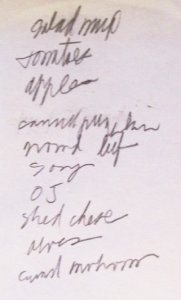 salad mix
tomatoes
apples
canned pumpkin
ground beef
soup
OJ
shed chese
olives
cannd mshroom